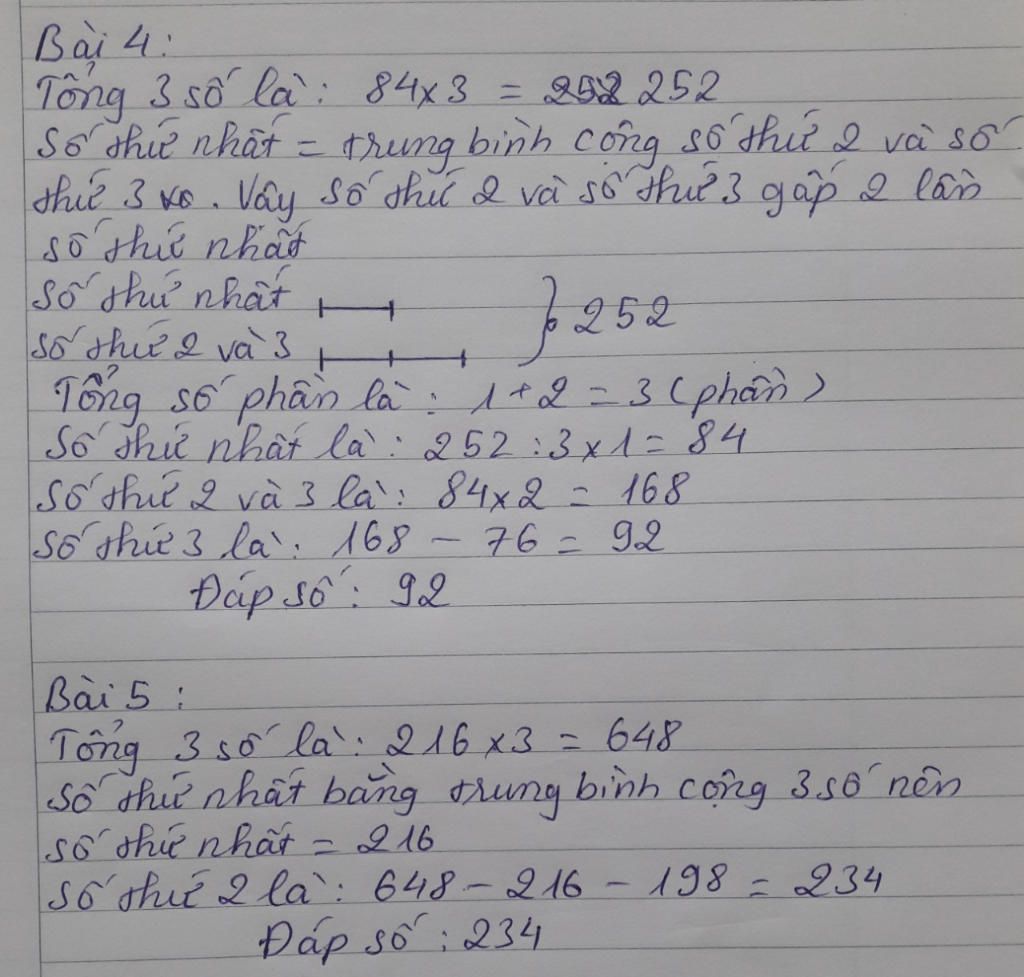 Bài 4:
Tổng 3 số là: 84x3 = 252 252
Số thứ nhất = trung bình cộng số thứ 2 và số
thứ 3. Vậy số thứ 2 và số thứ 3 gấp 2 lần
số thứ nhất
Số thứ nhất } 252
Số thứ 2 và 3
Tổng số phần là: 1+2 = 3 (phần)
Số thứ nhất là: 252:3x1 = 84
Số thứ 2 và 3 là: 84x2 = 168
Số thứ 3 là: 168 - 76 = 92
Đáp số: 92
Bài 5:
Tổng 3 số là: 216x3 = 648
Số thứ nhất bằng trung bình cộng 3 số nên
số thứ nhất = 216
Số thứ 2 là: 648 - 216 - 198 = 234
Đáp số: 234